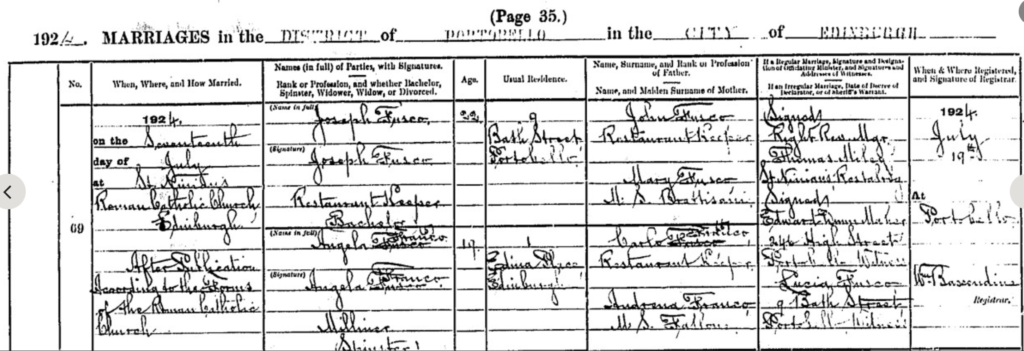 (Page 35.)
1924. MARRIAGES in the DISTRICT of PORTOBELLO in the CITY of EDINBURGH
No.
When, Where, and How Married.
Names (in full) of Parties, with Signatures.
Rank or Profession, and whether Bachelor, Spinster, Widower, Widow, or Divorced.
Age.
Usual Residence.
Name, Surname, and Rank or Profession of Father.
Name, and Maiden Surname of Mother.
If a Regular Marriage, Signature and Designation of Officiating Minister, and Signatures and Addresses of Witnesses.
If an Irregular Marriage, Date of Decree of Declarator, or of Sheriff's Warrant.
When & Where Registered, and Signature of Registrar.
69
1924.
on the Seventeenth
day of July
at St. Ninian's
Roman Catholic Church
Edinburgh
After Publication
According to the Forms
of the Roman Catholic
Church
(Name in full)
Joseph Fusco
(Signature)
Joseph Fusco
Restaurant Keeper
Bachelor
(Name in full)
Angela Franco
(Signature)
Angela Franco
Milliner
(Spinster)
22
19
9
Bath Street
Portobello
1
Edina Place
Edinburgh
John Fusco
Restaurant Keeper
Mary Fusco
M. S.
Carlo
Restaurant Keeper
Andrena Franco
M. S.
(Signed)
Right Rev. Mgr.
Thomas Miley
St. Ninian's Restalrig
(Signed)
Edward
High Street
Portobello Witness
Lucia Fusco
9 Bath Street
Portobello Witness
1924
July
19th
At
Portobello
Wm
Registrar.